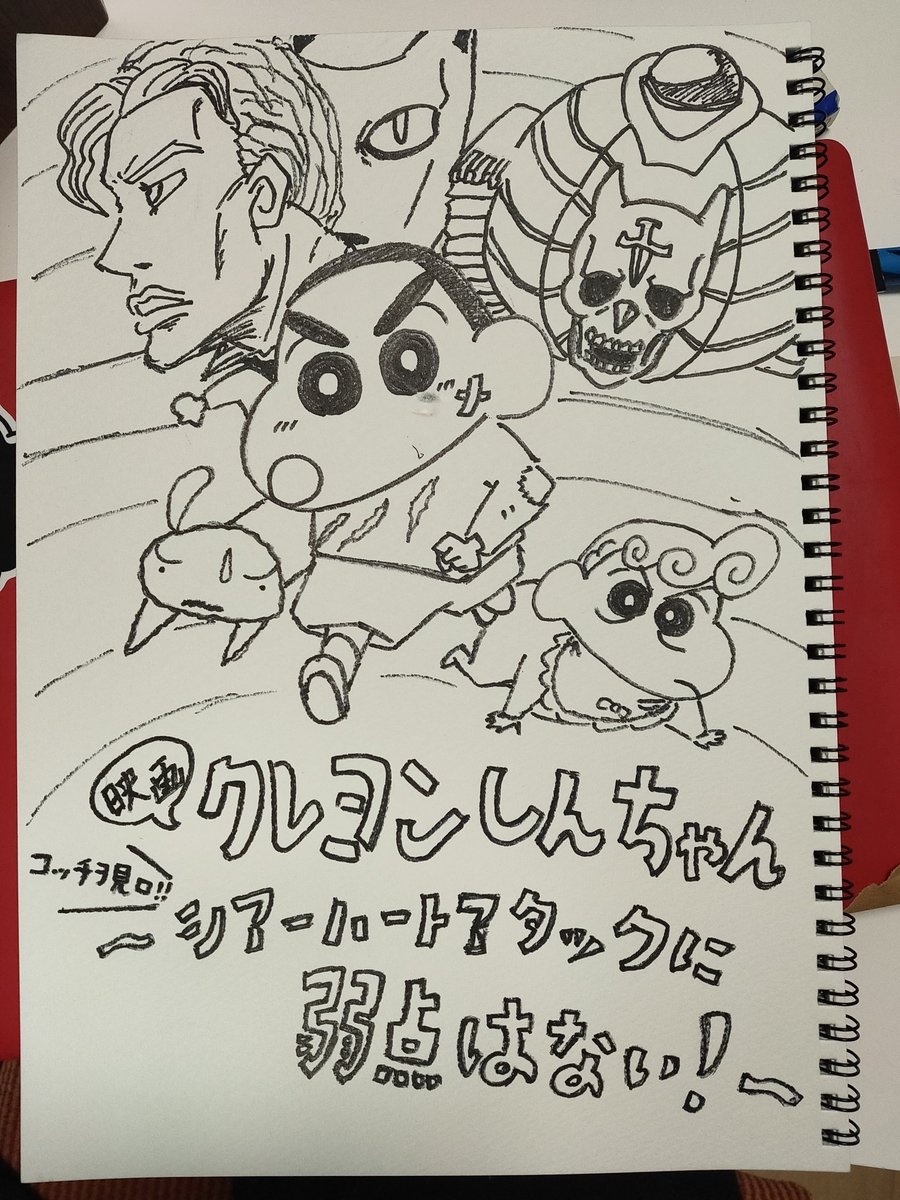 映画
クレヨンしんちゃん
コッチヲ見ロ!!
〜シアーハートアタックに
弱点はない!〜